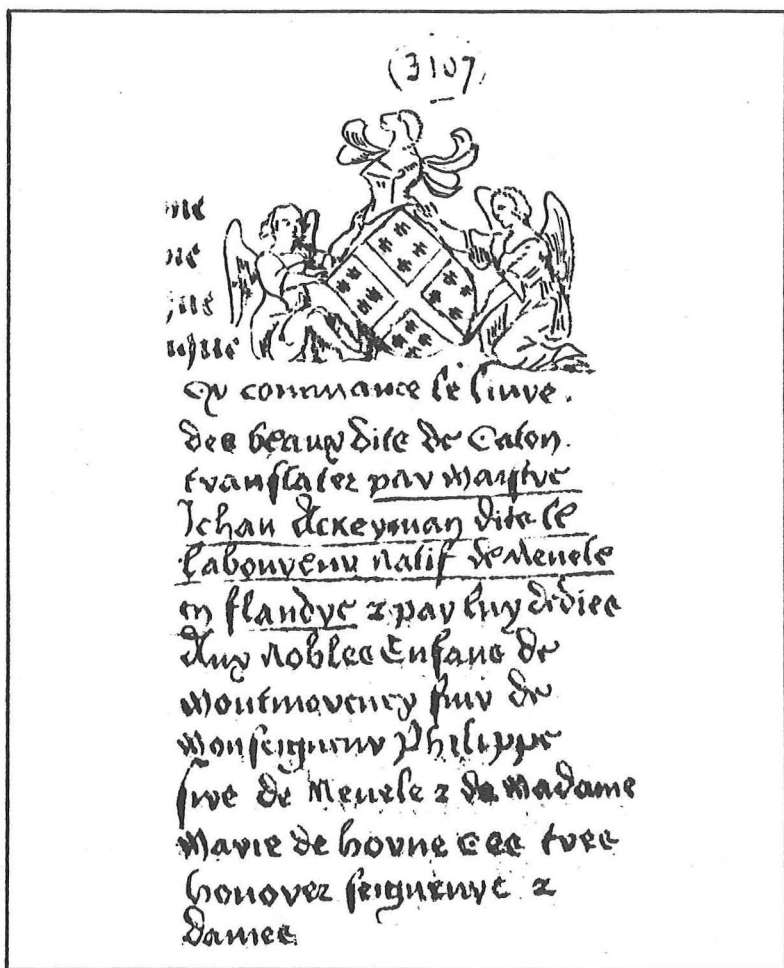 (3107)
Cy commance le liure.
des beaux dits de Caton.
translatez par maystre
Jehan Ackeyman dits le
laboureur natif de Nevele
en flandre & par luy dedies
Aux nobles Enfans de
Montmorency fuiz de
Monseigneur Philippe
sire de Nevele & de Madame
Marie de hornes ses tres
honorez seigneurs &
dames